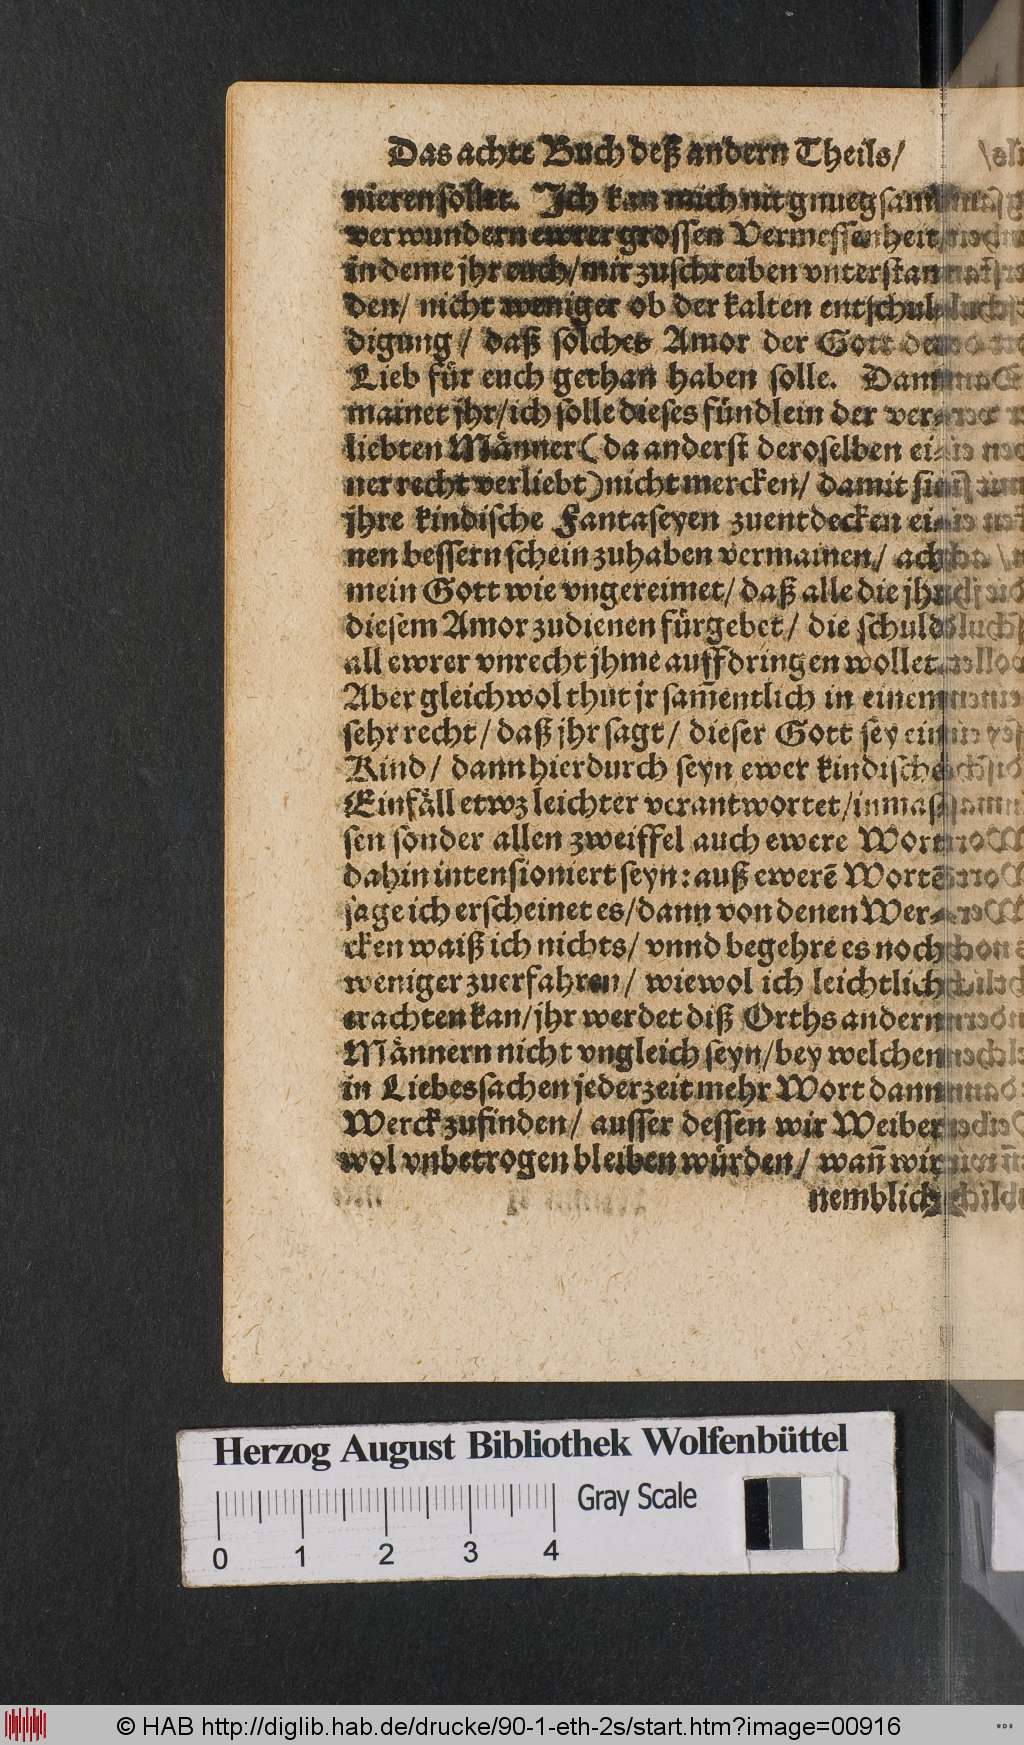 Das achte Buch deß andern Theils/
nieren sollet. Ich kan mich nit gnuegsam
verwundern ewrer grossen Vermessenheit/
in deme jhr euch/ mir zuschreiben vnterstan
den/ nicht weniger ob der kalten entschul-
digung/ daß solches Amor der Gott der
Lieb für euch gethan haben solle. Dann
mainet jhr/ ich solle dieses fündlein der ver-
liebten Männer (da anderst deroselben ei-
ner recht verliebt) nicht mercken/ damit sie
jhre kindische Fantaseyen zuentdecken ei-
nen bessern schein zuhaben vermainen/ ach
mein Gott wie vngereimet/ daß alle die jhr
diesem Amor zudienen fürgebet/ die schuld
all ewrer vnrecht jhme auffdringen wollet.
Aber gleichwol thut jr sam̃entlich in einem
sehr recht/ daß jhr sagt/ dieser Gott sey ein
Kind/ dann hierdurch seyn ewer kindische
Einfäll etwz leichter verantwortet/ inmas-
sen sonder allen zweiffel auch ewere Wort
dahin intensioniert seyn: auß ewerẽ Wortẽ
sage ich erscheinet es/ dann von denen Wer-
cken waiß ich nichts/ vnnd begehre es noch
weniger zuerfahren/ wiewol ich leichtlich
erachten kan/ jhr werdet diß Orths andern
Männern nicht vngleich seyn/ bey welchen
in Liebessachen jederzeit mehr Wort dann
Werck zufinden/ ausser dessen wir Weiber
wol vnbetrogen bleiben würden/ wañ wir
nemblich
Herzog August Bibliothek Wolfenbüttel
Gray Scale
0 1 2 3 4
© HAB http://diglib.hab.de/drucke/90-1-eth-2s/start.htm?image=00916